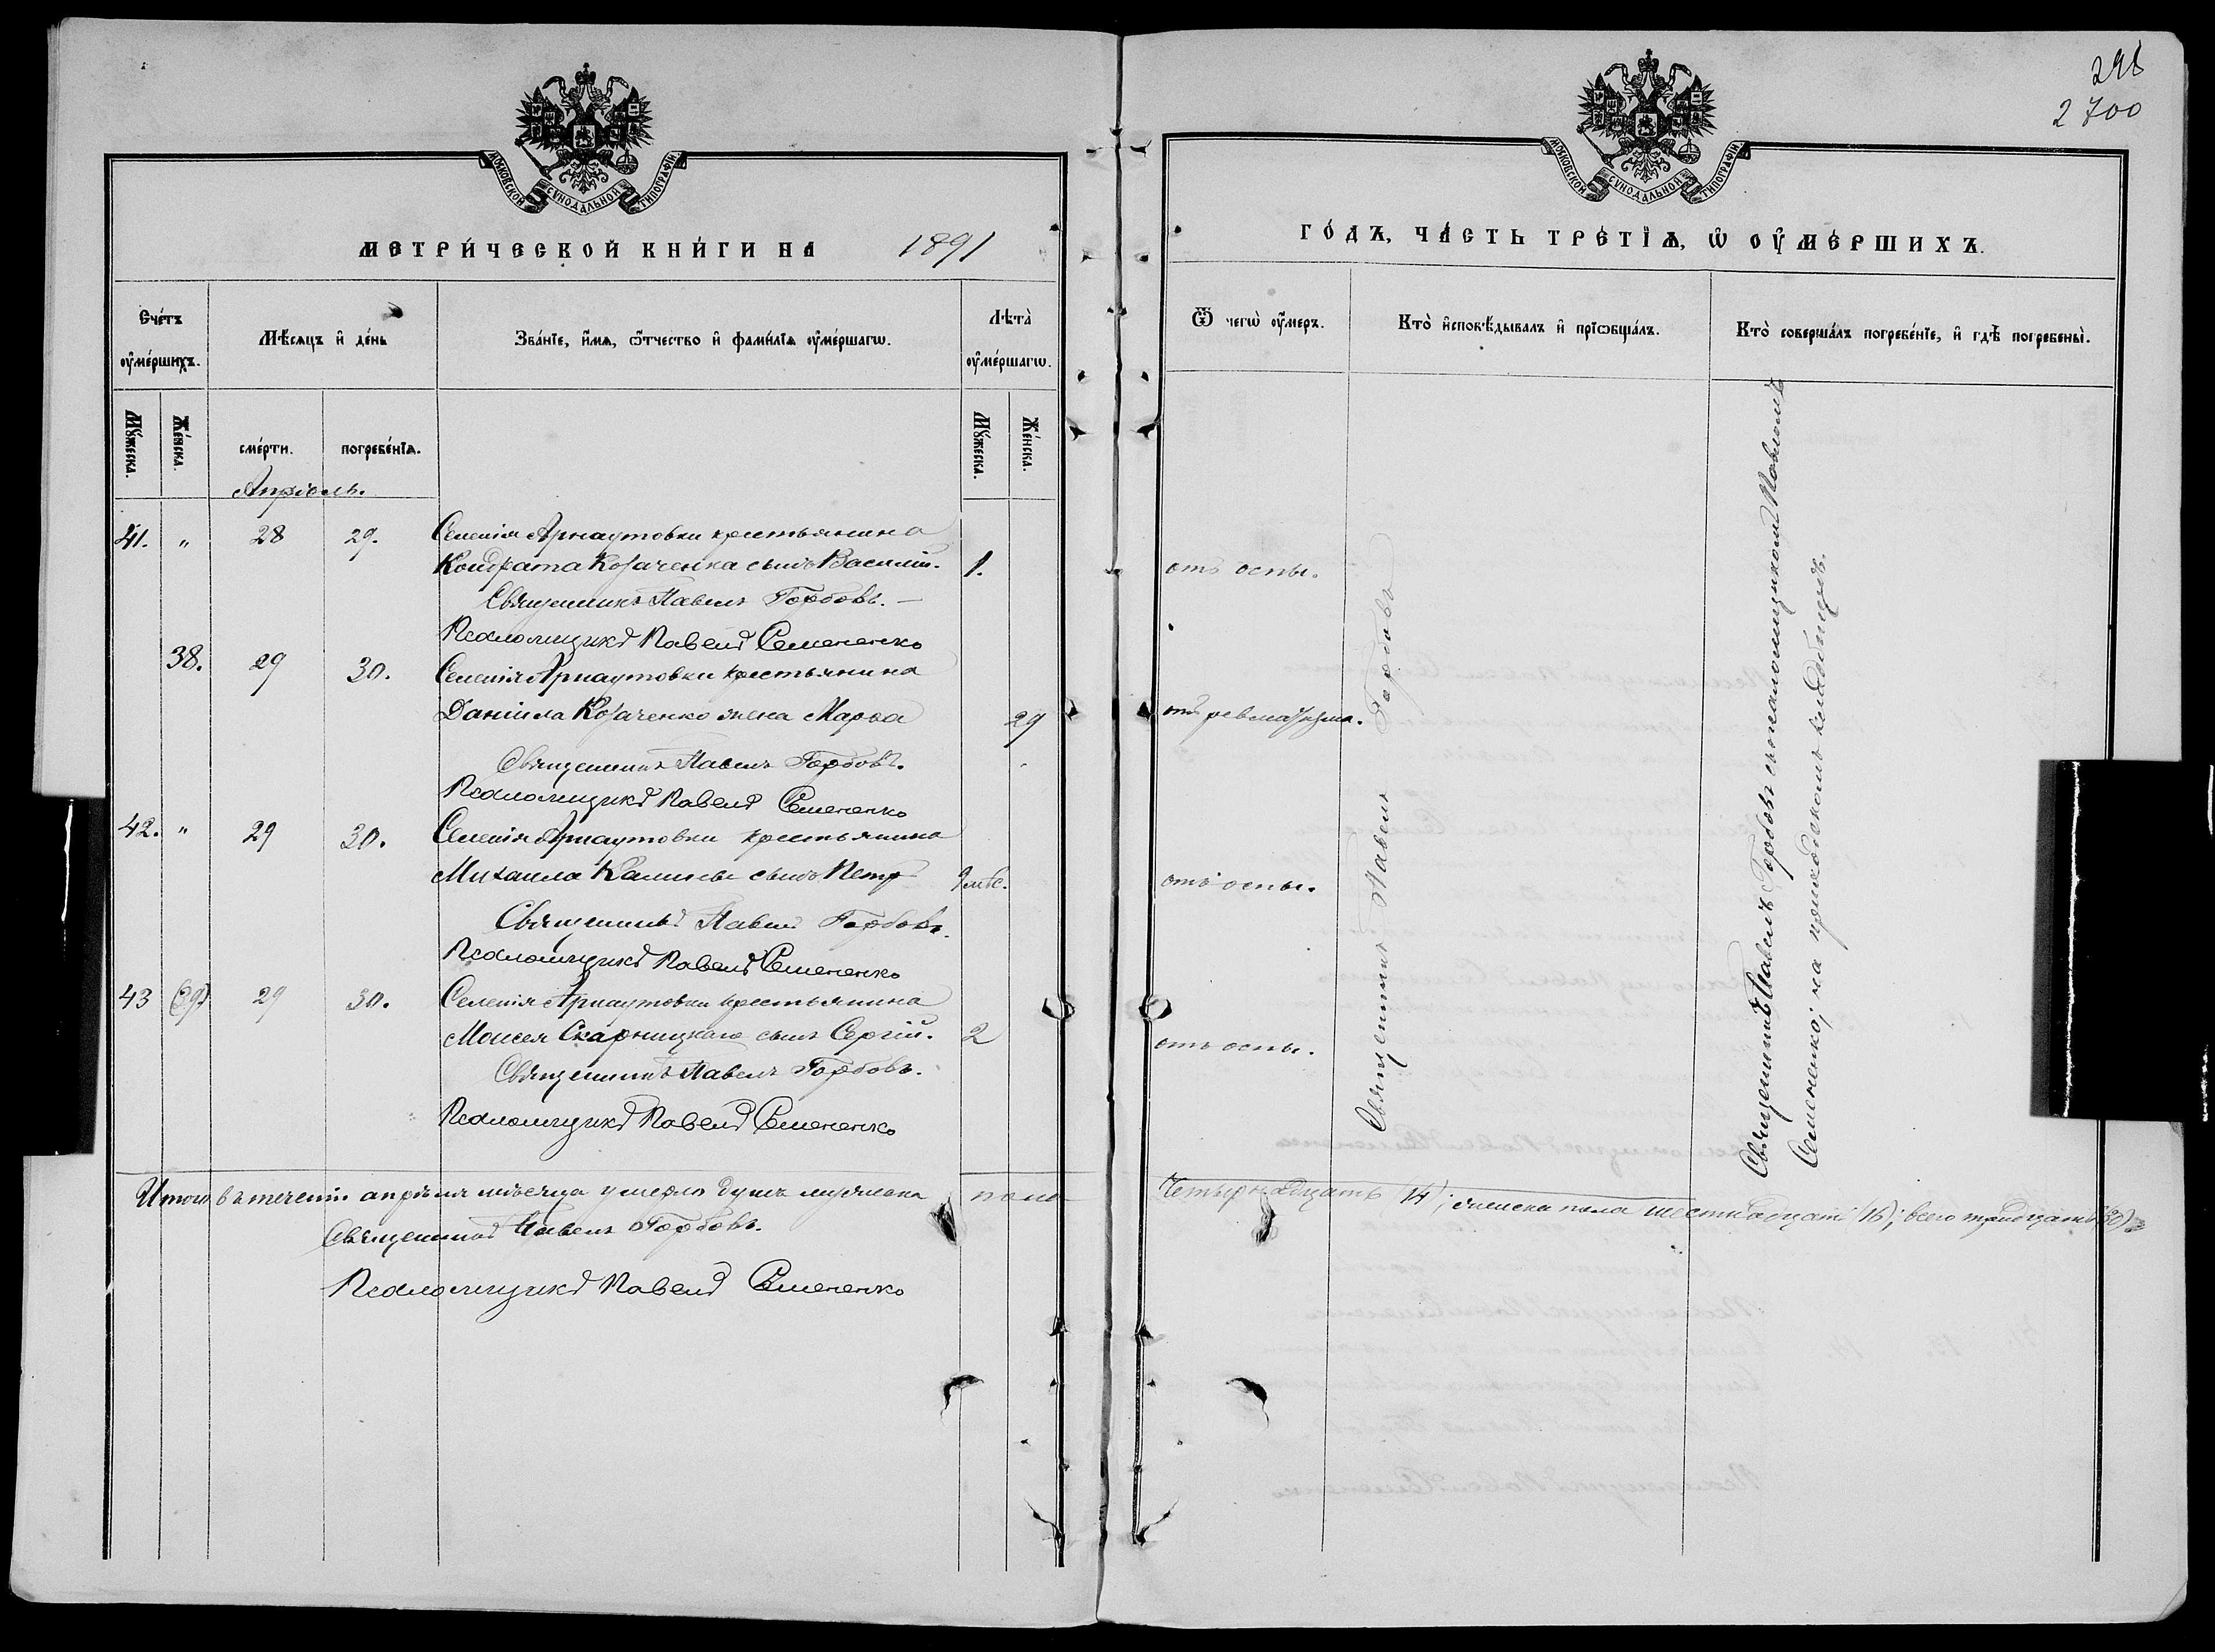 МОСКОВСКОЙ СУНОДАЛЬНОЙ ТИПОГРАФІИ
МЕТРИ́ЧЕСКОЙ КНИ́ГИ НА 1891
Сче́тъ ᲂу҆ме́ршихъ.
Мѣ́сяцъ и҆ де́нь
Зва́нїе, и҆́мѧ, ѻ҆́тчество и҆ фами́лїѧ ᲂу҆ме́ршагѡ.
Лѣта̀ ᲂу҆ме́ршагѡ.
Мꙋ́жеска.
Же́нска.
сме́рти.
погребе́нїѧ.
Мꙋ́жеска.
Же́нска.
Апрѣль.
41. " 28 29. Селенія Арнаутовки крестьянина
Кондрата Козаченка сынъ Василій. 1.
Священникъ Павелъ Горбовъ. —
Псаломщикъ Павелъ Семененко
38. 29 30. Селенія Арнаутовки крестьянина
Даніила Козаченко жена Марѳа 29
Священникъ Павелъ Горбовъ.
Псаломщикъ Павелъ Семененко
42. " 29 30. Селенія Арнаутовки крестьянина
Михаила Калины сынъ Петръ 9 мѣс.
Священникъ Павелъ Горбовъ.
Псаломщикъ Павелъ Семененко
43 (39) 29 30. Селенія Арнаутовки крестьянина
Моисея Скарницкаго сынъ Сергій. 2
Священникъ Павелъ Горбовъ.
Псаломщикъ Павелъ Семененко
Итого въ теченіи апрѣля мѣсяца умерло душъ мужеска пола
Священникъ Павелъ Горбовъ.
Псаломщикъ Павелъ Семененко
2700
МОСКОВСКОЙ СУНОДАЛЬНОЙ ТИПОГРАФІИ
ГО́ДЪ, ЧА́СТЬ ТРЕ́ТЇѦ, Ѡ҆ ОУ҆МЕ́РШИХЪ.
Ѿ чегѡ̀ ᲂу҆́меръ.
Кто̀ и҆сповѣ́дывалъ и҆ прїѡбща́лъ.
Кто̀ соверша́лъ погребе́нїе, и҆ гдѣ̀ погребены̀.
отъ оспы.
отъ ревматизма.
отъ оспы.
отъ оспы.
Священникъ Павелъ Горбовъ
Священникъ Павелъ Горбовъ съ псаломщикомъ Павломъ
Семененко; на приходскомъ кладбищѣ.
четырнадцать (14); женска пола шестнадцать (16); всего тридцать (30).